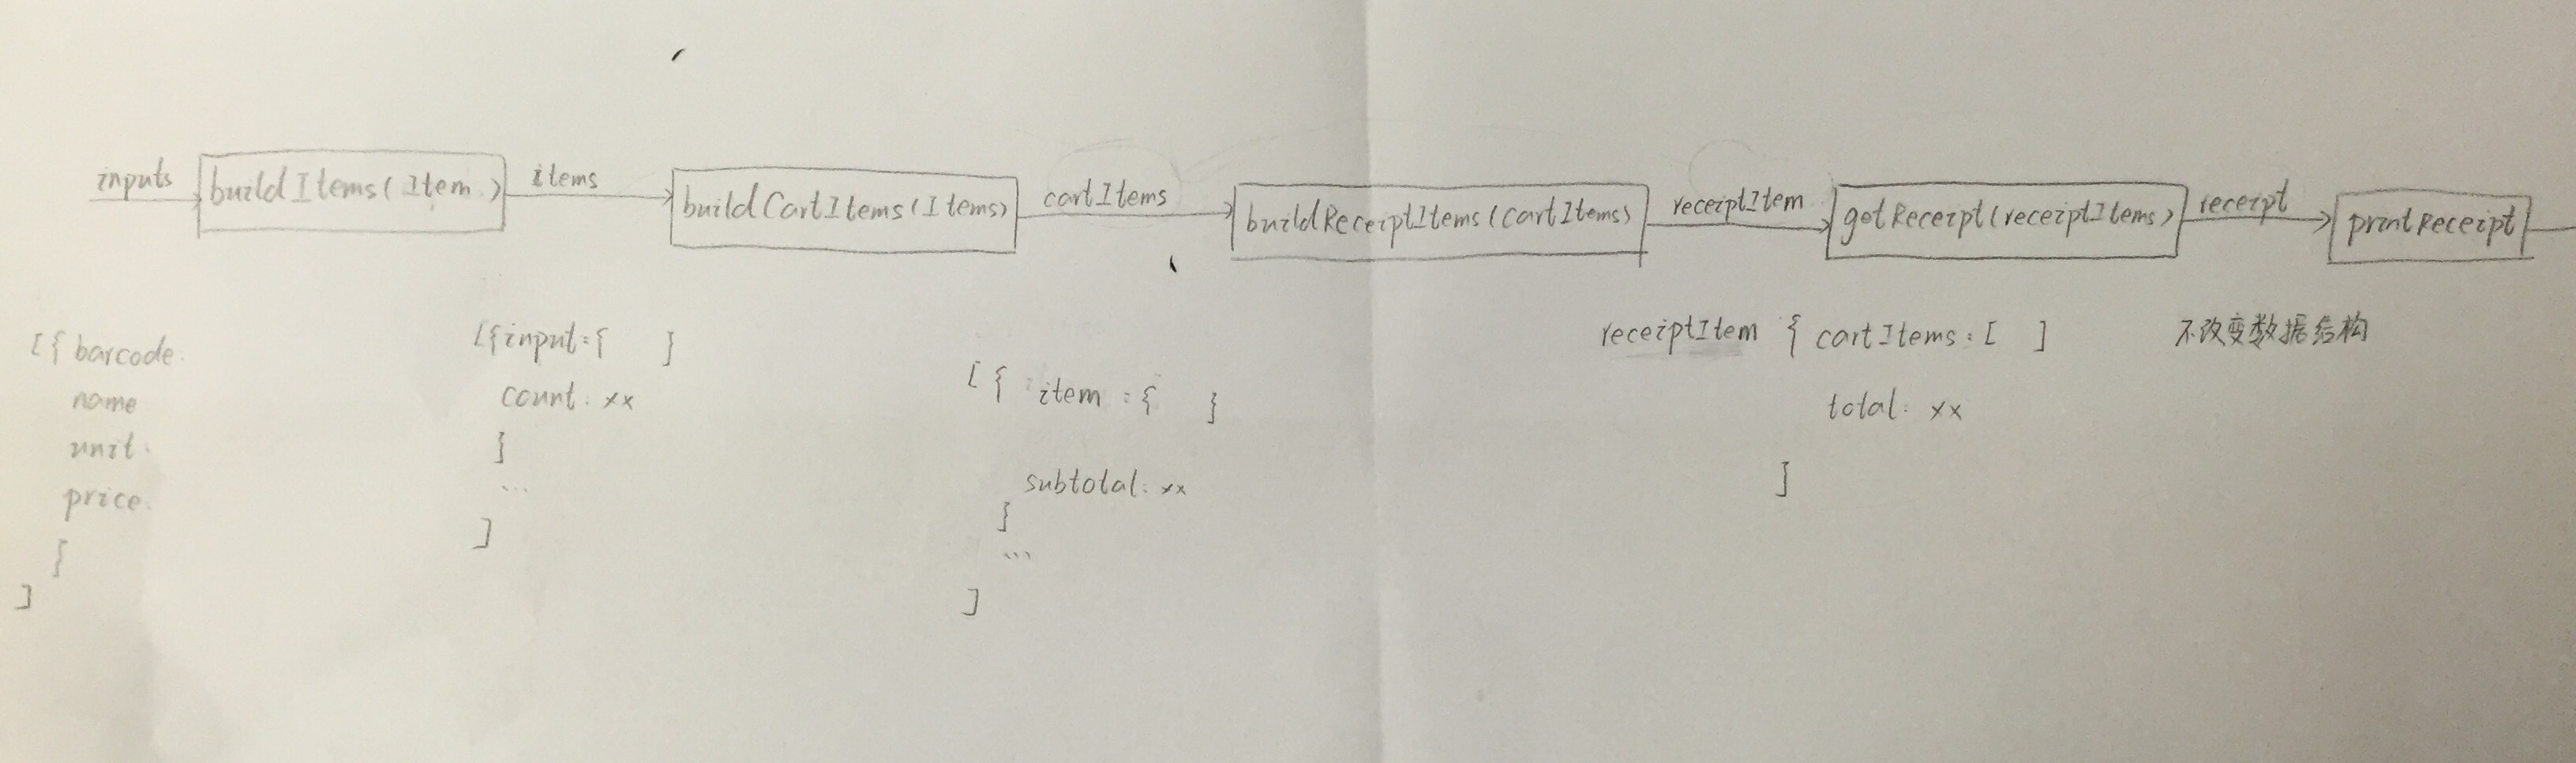 inputs
buildItems(Item)
items
buildCartItems(Items)
cartItems
buildReceiptItems(cartItems)
receiptItem
getReceipt(receiptItems)
receipt
printReceipt
[{ barcode.
name
unit.
price.
}
]
[{input:{ }
count: xx
}
...
]
[{ item :{ }
subtotal: xx
}
...
]
receiptItem { cartItems: [ ]
total: xx
}
不改变数据结构